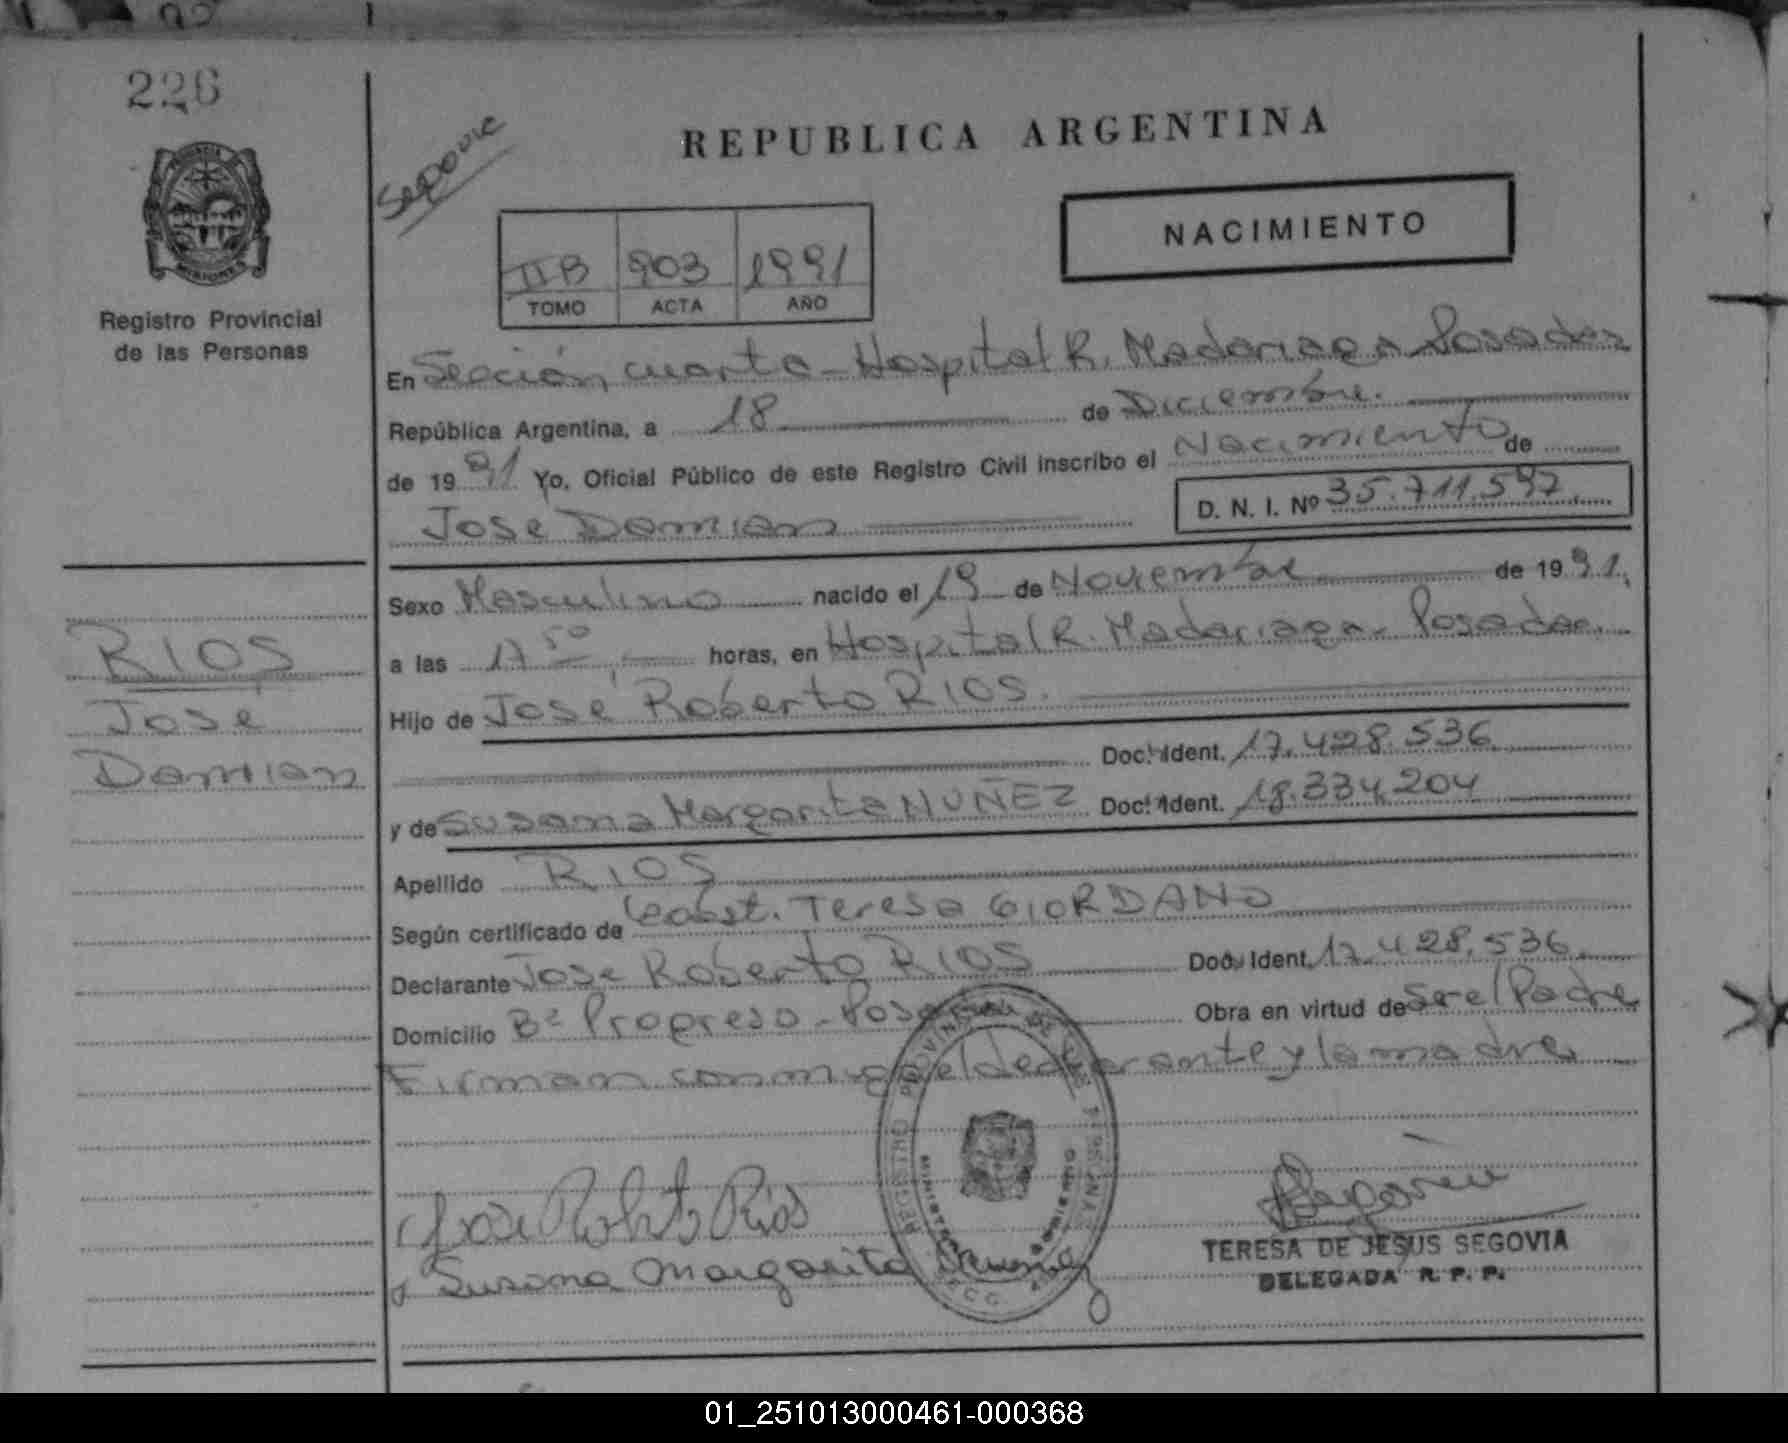 226
Registro Provincial
de las Personas
Segovia
REPUBLICA ARGENTINA
NACIMIENTO
II B 903 1991
TOMO ACTA AÑO
En Sección cuarta - Hospital R. Madariaga Posadas
República Argentina, a 18 de Diciembre.
de 19 91 Yo, Oficial Público de este Registro Civil inscribo el Nacimiento de
José Damian D. N. I. Nº 35.711.597
Sexo Masculino nacido el 19 de Noviembre de 19 91.
RIOS
José
Damian
a las 17 50 horas, en Hospital R. Madariaga - Posadas.
Hijo de José Roberto RIOS.
Doc. Ident. 17.428.536
y de Susana Margarita NUÑEZ Doc. Ident. 18.334.204
Apellido RIOS
Según certificado de Obst. Teresa GIORDANO
Declarante José Roberto RIOS Doc. Ident. 17.428.536.
Domicilio Bº Progreso - Obra en virtud de Ser el Padre
Firman conmigo el declarante y la madre
REGISTRO PROVINCIAL DE LAS PERSONAS
José Roberto Ríos
Susana Margarita
TERESA DE JESUS SEGOVIA
DELEGADA R. P. P.
01_251013000461-000368